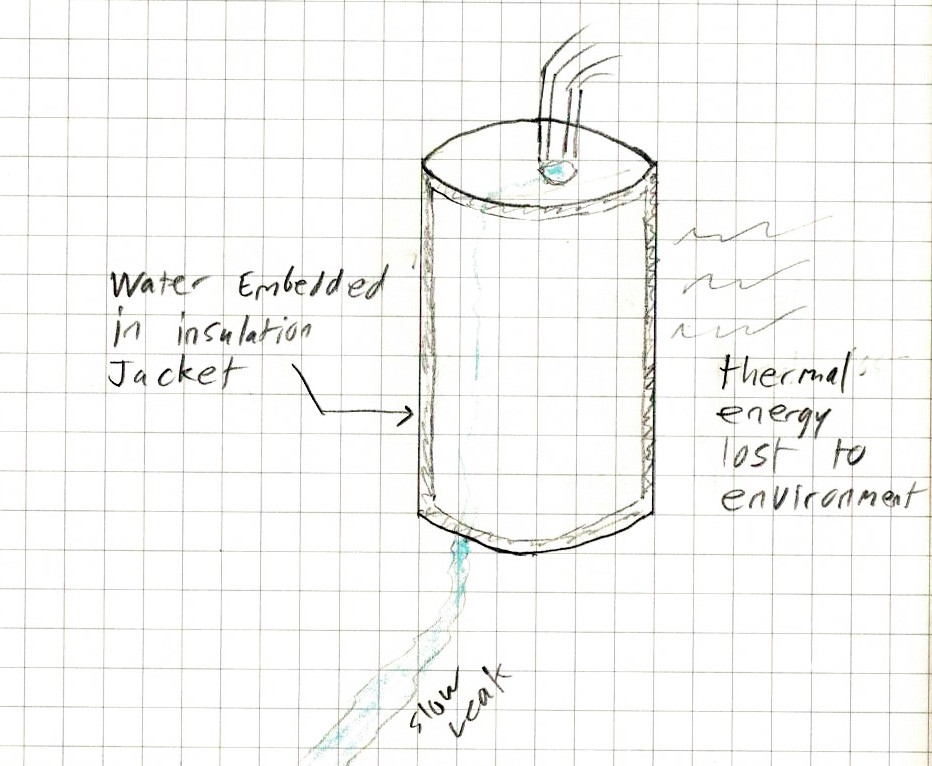 Water Embedded
in insulation
Jacket
thermal
energy
lost to
environment
slow
Leak